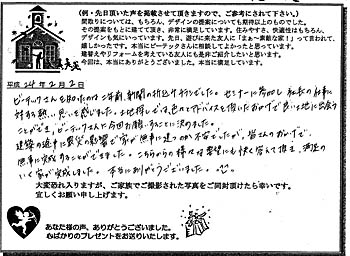 (例・先日頂いた声を掲載させて頂きますので、ご参考にされて下さい。)
間取りについては、もちろん、デザインの提案についても期待以上のものでした。
その提案をもとに建てて頂き、非常に満足しています。住みやすさ、快適性はもちろん、
デザインも気にいっています。先日、遊びに来た友人に「まぁ〜素敵な家！」って言われて、
嬉しかったです。本当にビーテックさんに相談してよかったと思っています。
建替えやリフォームを考えている友人にも是非ご紹介したいと思います。
今回は、本当にありがとうございました。本当に満足しています。
平成24年2月2日
ビーテックさんを知ったのは二年前、新聞の折込チラシでした。セミナーに参加し社長の家に
対する熱い思いを感じました。土地探しでは、色々アドバイスを頂いたおかげで良い土地に出会う
ことができ、ビーテックさんに今回お願いすることに決めました。
建築の途中に震災の影響で家が無事に建つのか不安でしたが、皆さんのおかげで、
無事に完成することができました。こちらからの様々な要望にも快く答えて頂き、満足の
いく家が完成しました。本当にありがとうございました。
大変恐れ入りますが、ご家族でご撮影された写真をご同封頂けたら幸いです。
宜しくお願い申し上げます。
あなた様の声、ありがとうございました。
心ばかりのプレゼントをお送りいたします。